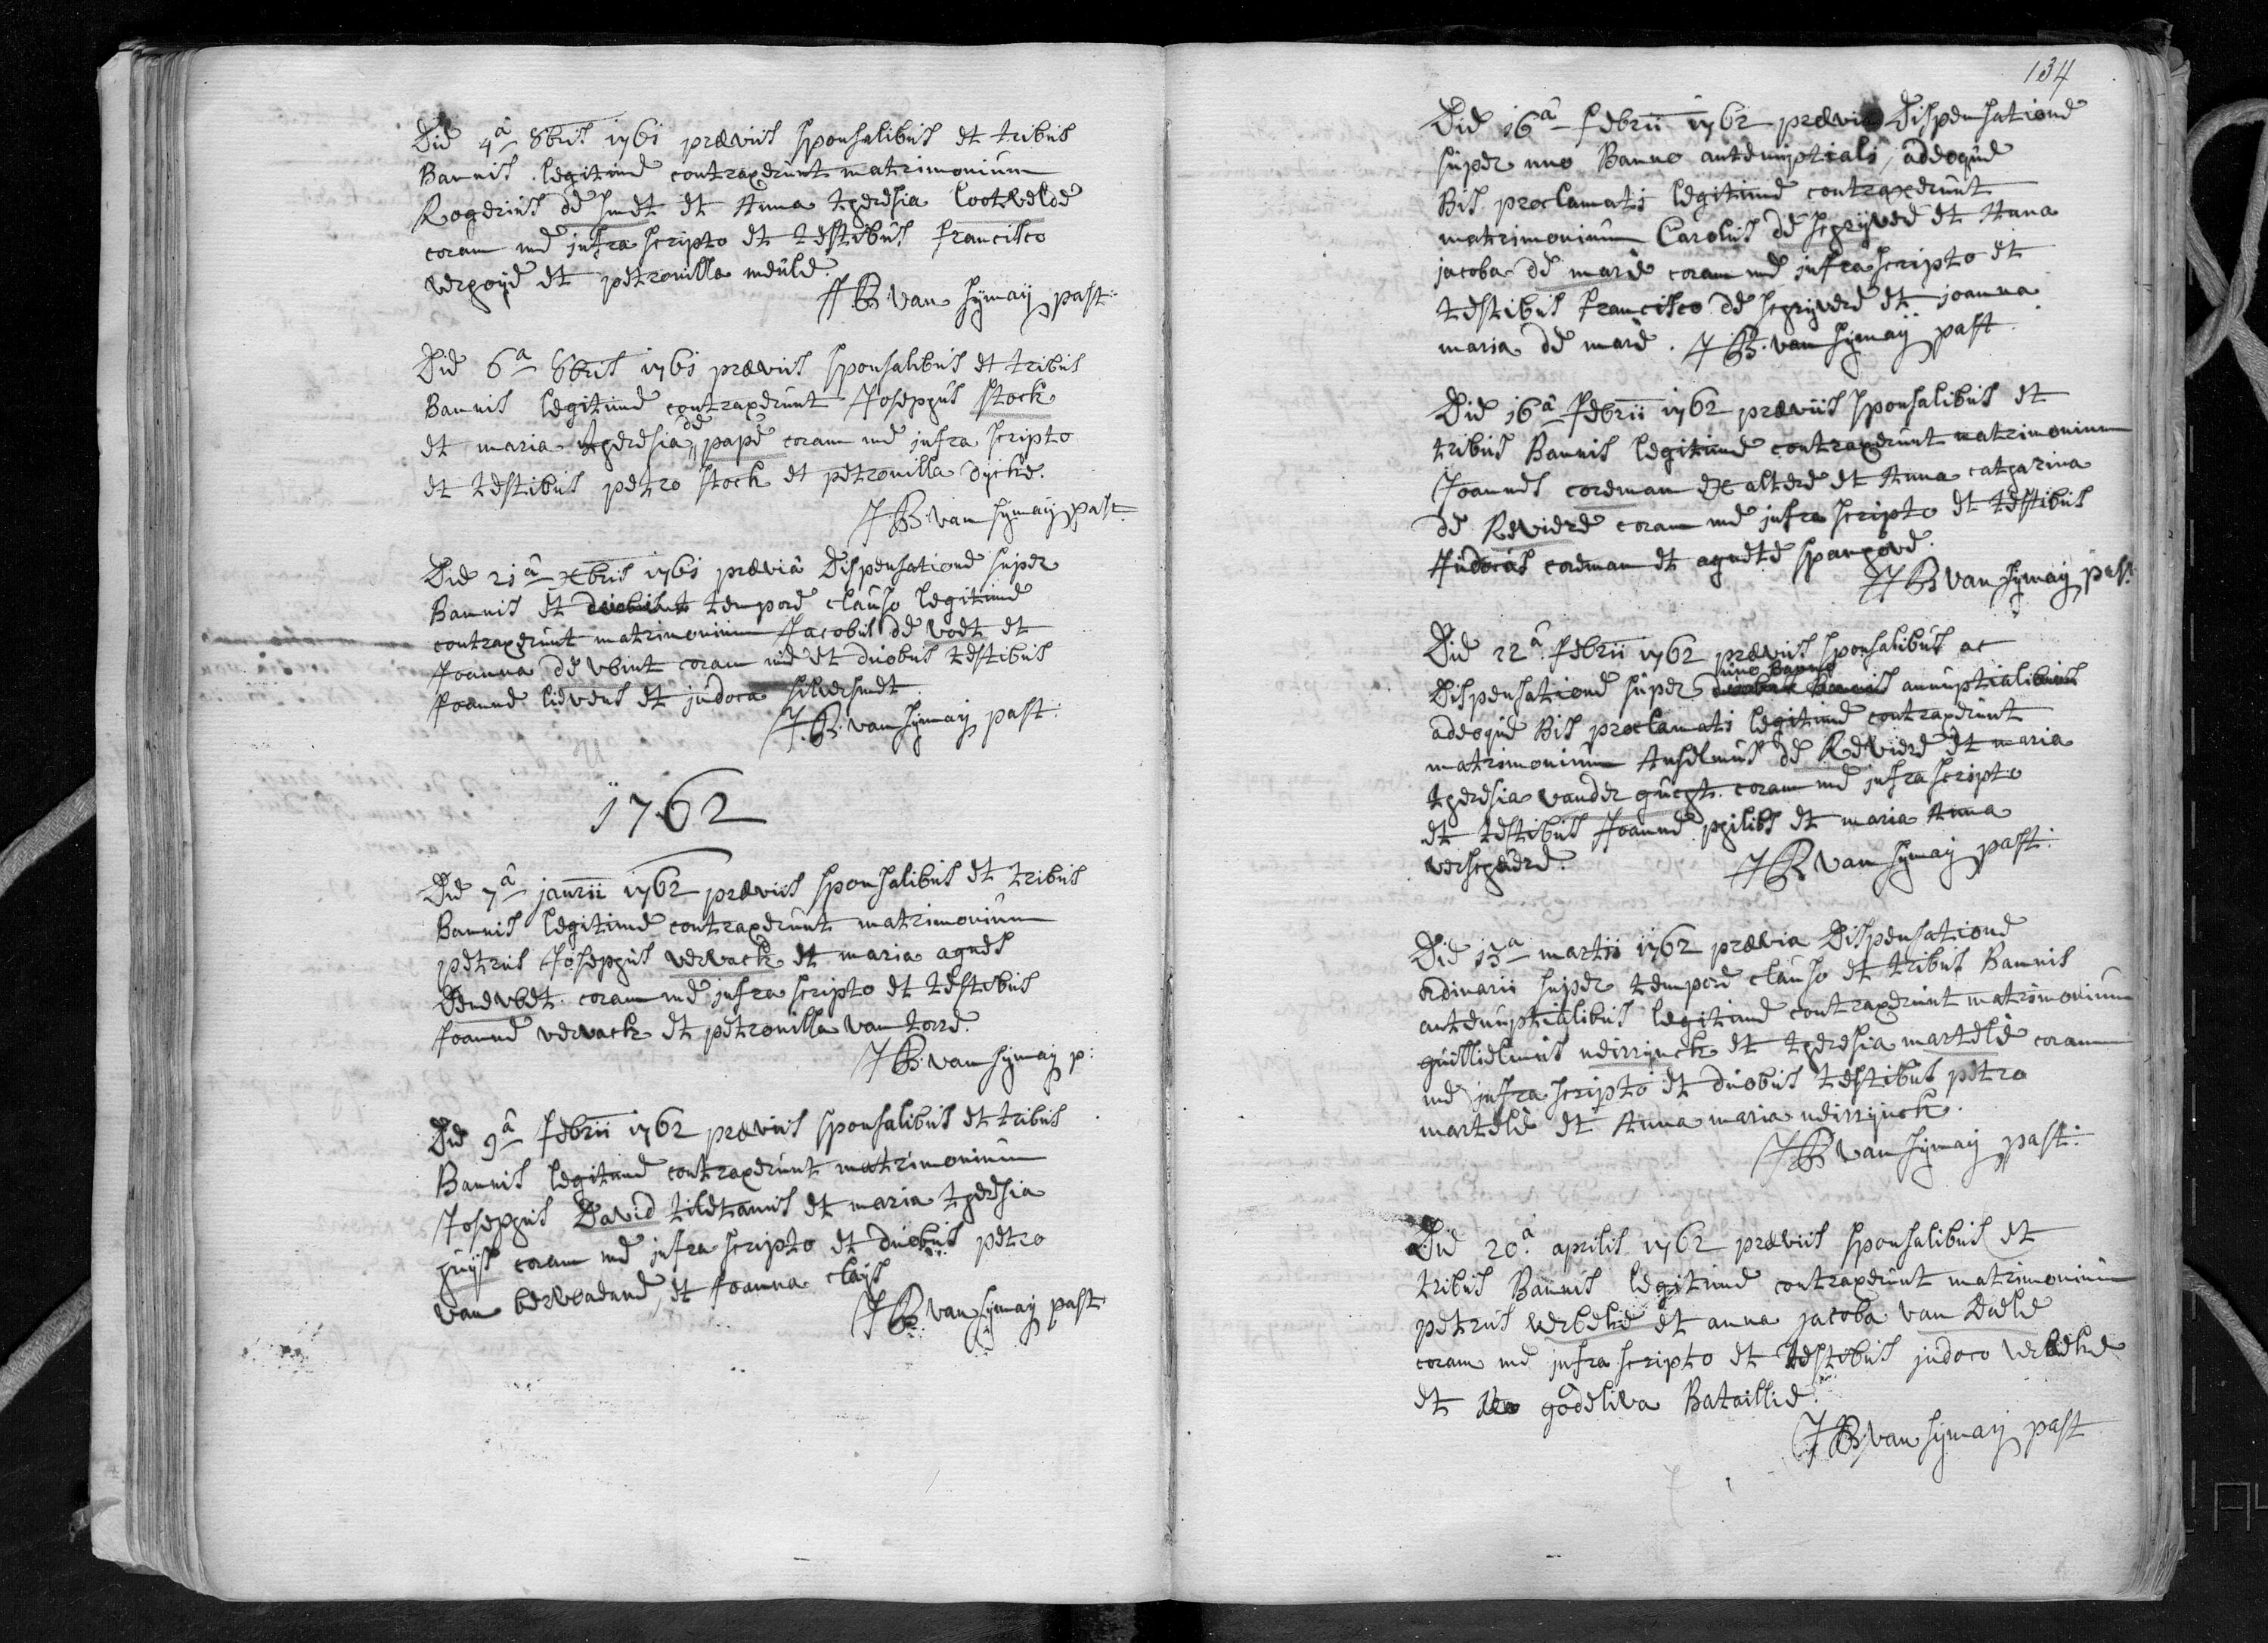 Die 4â 8bris 1761 præviis sponsalibus et tribus
Bannis legitime contraxerunt matrimonium
Rogerius de smet et Anna theresia Cootvelde
coram me infra scripto et testibus francisco
verhoije et petronilla meule.
JB: van hijmaij past:
Die 6â 8bris 1761 præviis sponsalibus et tribus
Bannis legitime contraxerunt Josephus stock
et maria theresia de pape coram me infra scripto
et testibus petro stock et petronilla dycke.
JB: van hymaij past.
Die 21â Xbris 1761 præviâ Dispensatione super
Bannis et tempore clauso legitime
contraxerunt matrimonium Jacobus de voet et
Joanna de vbint coram me et duobus testibus
Joanne lievens et judoca silversmet
J.B. van hijmaij past:
1762
Die 7â janrii 1762 præviis sponsalibus et tribus
Bannis legitime contraxerunt matrimonium
petrus Josephus vervack et maria agnes
Denevbet coram me infra scripto et testibus
Joanne vervack et petronilla van torre.
JB: van hymaij p:
Die 9â febrii 1762 præviis sponsalibus et tribus
Bannis legitime contraxerunt matrimonium
Josephus David tiletanus et maria theresia
huijs coram me infra scripto et duobus petro
van berwaerne, et Joanna claijs
JB: van hymaij past
134
Die 16â febrii 1762 prævia Dispensatione
super uno Banno antenuptiali, adeoque
Bis proclamati legitime contraxerunt
matrimonium Carolus de schrijvere et Anna
jacoba de mare coram me infra scripto et
testibus francisco de schrijvere et joanna
maria de mare. JB: van hymaij past
Die 16â febrii 1762 præviis sponsalibus et
tribus Bannis legitime contraxerunt matrimonium
Joannes coreman ex altere et Anna catharina
de Reviere coram me infra scripto et testibus
Judocus coreman et agnete spanhove.
JB van hymaij past
Die 22â febrii 1762 præviis sponsalibus ac
uno Banno
Dispensatione super annuptialibus
adeoque Bis proclamati legitime contraxerunt
matrimonium Anselmus de Reviere et maria
theresia vander gucht coram me infra scripto
et testibus Joanne philips et maria Anna
verscheure.
JB van hymaij past:
Die 13â martii 1762 prævia Dispensatione
ordinarii super tempore clauso et tribus Bannis
antenuptialibus legitime contraxerunt matrimonium
guillielmus neirrijnck et theresia martele coram
me infra scripto et duobus testibus petro
martele et Anna maria neirrijnck.
JB van hymaij past:
Die 20â aprilis 1762 præviis sponsalibus et
tribus Bannis legitime contraxerunt matrimonium
petrus verbeke et anna jacoba van Daele
coram me infra scripto et testibus judoco verbeke
et godeliva Bataillie.
JB: van hijmaij past